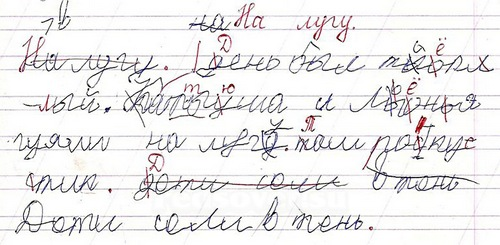 на На лугу.
На лугу. День был тёпл
-лый. Катюша и Лёня
гуяли на лугу. Там рос кус
тик. доти соли в тень
Доти соли в тень.